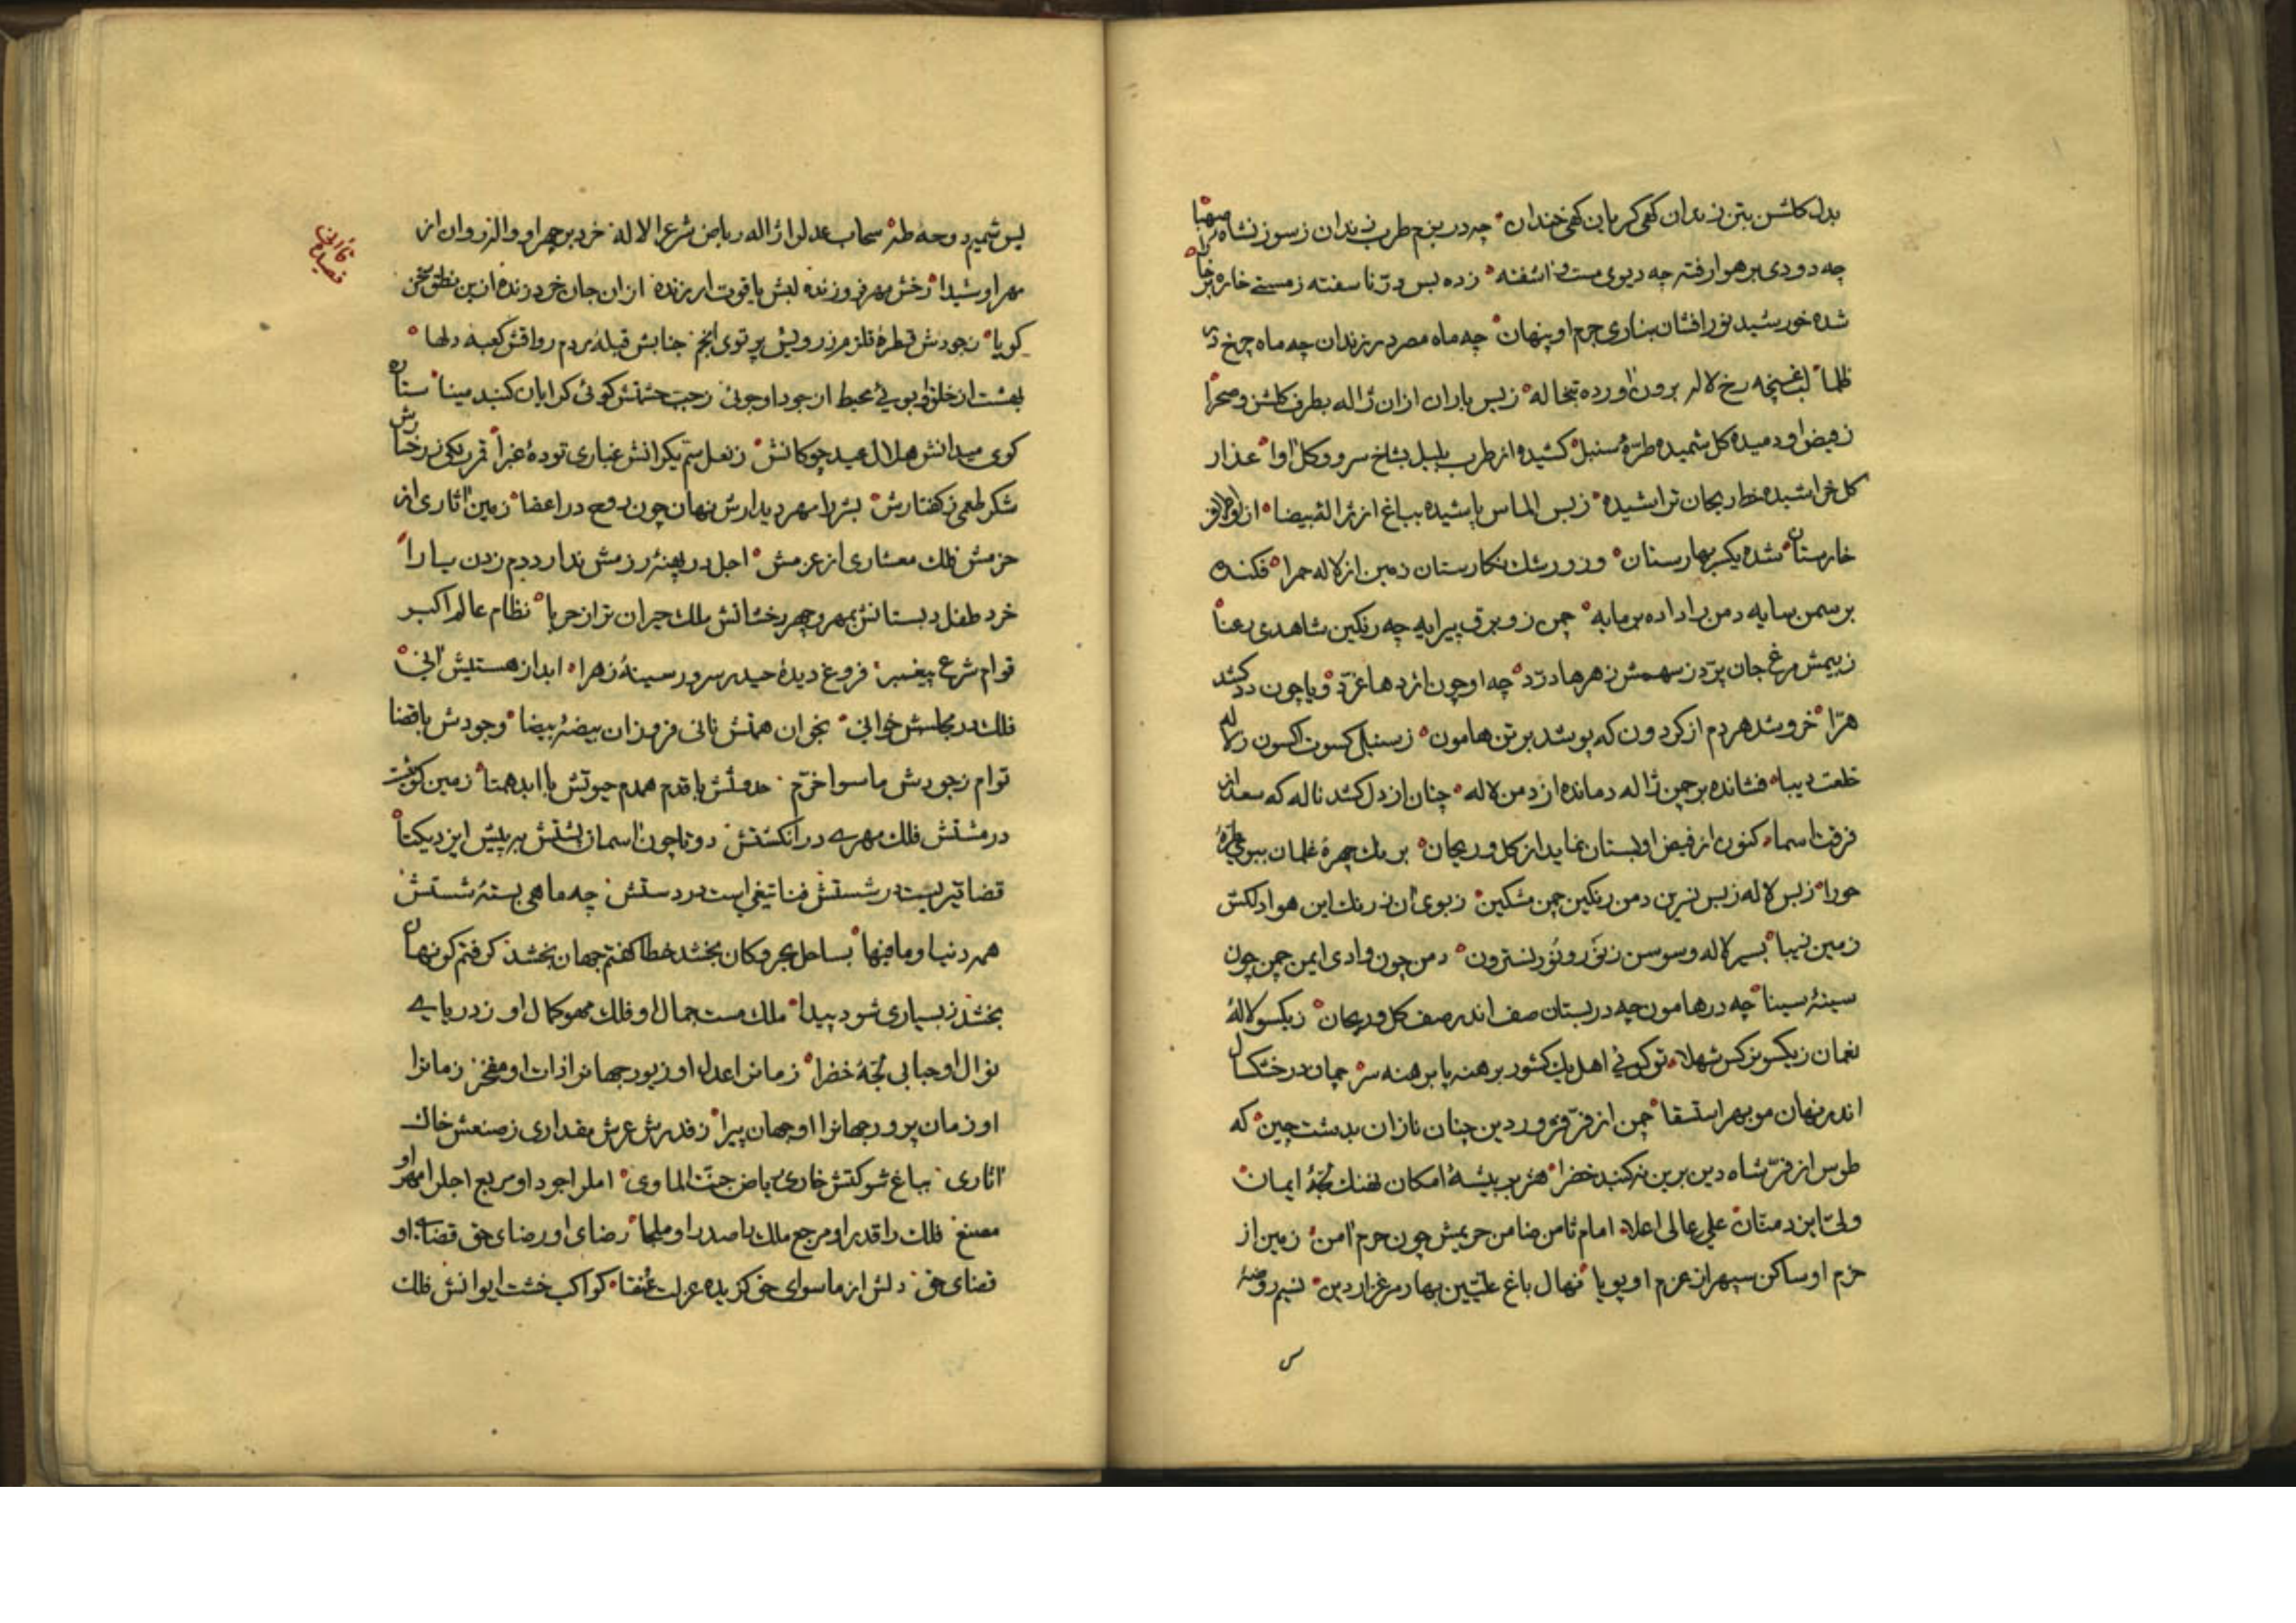 بدل کلشن بتن زندان کهی کریان کهی خندان چه در بزم طرب رندان ز سوز نشاه صهبا
چه دودی بر هوا رفته چه دیوی مست و اشفته زده بس در ناسفته ز مستی خاره بر خارا
شده خورشید نورافشان بتاری جرم او پنهان چه ماه مصر در زندان چه ماه چرخ در
ظلما لب غنچه رخ لاله برون اورده تبخاله ز بس باران از ان ژاله بطرف کلشن و صحرا
ز فیض او دمیده کل شمیده طرّهٔ سنبل کشیده از طرب بلبل بشاخ سرو و کل اوا عذار
کل خراشیده خط ریحان تراشیده ز بس الماس پاشیده بباغ از ژاله بیضا از و اطراف
خارستان شده یکسر بهارستان وزو رشک نکارستان دمین از لاله حمرا فکنده
بر سمن سایه دمن را داده سرمایه چمن زو برق پیرایه چه رنکین شاهدی رعنا
ز بیمش مرغ جان پرّد ز سهمش زهرها درّد چه او چون اژدها غرّد و یا چون دد کشد
هرّا خروشد هر دم از کردون که پوشد بر تن هامون ز سنبل کسوت اکسون ز لاله
خلعت دیبا فشانده بر چمن ژاله دمانده از دمن لاله چنان از دل کشد ناله که سعد از
فرقت اسما کنون از فیض او بستان نماید از کل و ریحان برنک چهرهٔ غلمان ببوی طرّهٔ
حورا ز بس لاله ز بس نسرین دمن رنکین چمن مشکین ز بوی ان ز رنک این هوا دلکش
زمین زیبا بسیر لاله و سوسن ز نور و نور نسترون دمن چون وادی ایمن چمن چون
سینهٔ سینا چه در هامون چه در بستان صف اندر صف کل و ریحان ز یکسو لالهٔ
نعمان ز یکسو نرکس شهلا تو کوئی اهل یک کشور برهنه پا برهنه سر چمان در خشکسال
اندر نهان مو بهر استسقا چمن از فرّ فروردین چنان نازان بدشت چین که
طوس از فرّ شاه دین برین نه کنبد خضرا هژبر بیشهٔ امکان نهنک لجّهٔ ایمان
ولیّ ایزد منّان علی عالی اعلا امام ثامن ضامن حریمش چون حرم امن زمین از
حزم او ساکن سپهر از عزم او پویا نهال باغ علیّین بهار مرغزار دین نسیم روضهٔ
یس شمیم دوحهٔ طه سحاب عدل را ژاله ریاض شرع را لاله خرد بر چهر او واله روان از
مهر او شیدا رخش مهر فروزنده لبش یاقوت ارزنده از ان جان خرد زنده ازین نطق سخن
کویا ز جودش قطرهٔ قلزم ز رویش پرتوی انجم جنابش قبلهٔ مردم رواقش کعبه دلها
بهشت از خلق او بوئی محیط از جود او جوئی ز جیب حشمتش کوئی کرایان کنبد مینا ستاره
کوی میدانش هلال عید چوکانش ز نعل سمّ یکرانش غباری تودهٔ غبرا قمر رنکی ز رخسارش
شکر طعمی ز کفتارش بشر را مهر دیدارش نهان چون روح در اعضا زمین اثاری از
حزمش فلک معشاری از عزمش اجل در پهنهٔ رزمش ندارد دم زدن یارا
خرد طفل دبستانش بمهر و چهر رخشانش ملک حیران تر از حربا نظام عالم اکبر
قوام شرع پیغمبر فروغ دیدهٔ حیدر سرور سینهٔ زهرا ابد از هستیش انی
فلک در مجلسش خوانی بخوان همتش نانی فروزان بیضهٔ بیضا وجودش با قضا
توام ز جودش ماسوا خرّم حدوثش با قدم همدم حیوتش با ابد همتا زمین کوئیست
در مشتش فلک مهری در انکشتش دو تا چون اسمان پشتش بر پیش ایزد یکتا
قضا تیریست در شستش فنا تیغی است در دستش چه ماهی بستهٔ شستش
همه دنیا و مافیها بساحل بحر و کان بخشد خطا کفتم جهان بخشد کرفتم کو نهان
بخشد ز بسیاری شود پیدا ملک مست جمال او فلک محو کمال او ز دریای
نوال او حبابی لجّهٔ خضرا زمانرا عدل او زیور جهانرا ذات او مفخر زمانرا
او زمان پرور جهانرا او جهان پیرا ز قدرش عرش مقداری ز صنعش خاک
اثاری بباغ شوکتش خاری ریاض جنّت الماوی امل را جود او مربع اجل را مهر او
مصنع فلک را قدر او مرجع ملک را صدر او ملجا رضای او رضای حق قضای او
قضای حق دلش از ماسوای حق کزیده عزلت عنقا کواکب خشت ایوانش فلک